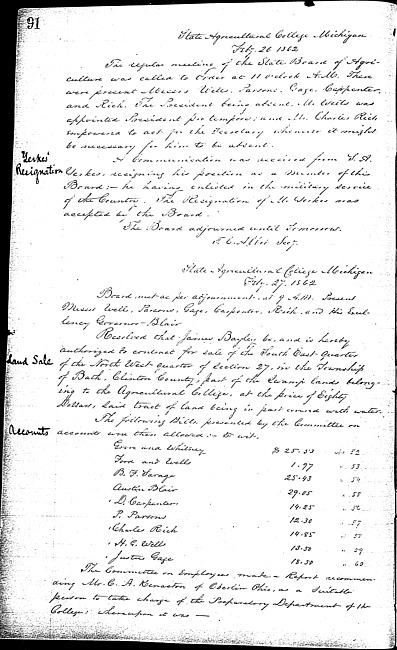 91
State Agricultural College Michigan
Feby. 26 1862
The regular meeting of the State Board of Agri-
culture was called to order at 11 o'clock A.M. There
were present Messrs Wells, Parsons, Gage, Carpenter,
and Rich. The President being absent Mr. Wells was
appointed President pro tempore; and Mr. Charles Rich
empowered to act for the Secretary whenever it might
be necessary for him to be absent.
Yerkes'
Resignation
A communication was received from
Yerkes, resigning his position as a member of this
Board:— he having enlisted in the military service
of the Country. The Resignation of Mr. Yerkes was
accepted by the Board.
The Board adjourned until Tomorrow.
Secy.
State Agricultural College Michigan
Feby. 27. 1862
Board met as per adjournment at 9 A.M. Present
Messrs Wells, Parsons, Gage, Carpenter, Rich, and His Excel-
lency Governor Blair
Land Sale
Resolved that James Bayley be, and is hereby
authorized to contract for sale of the South East quarter
of the North West quarter of Section 27, in the Township
of Bath, Clinton County, part of the Swamp lands belong-
ing to the Agricultural College, at the price of Eighty
Dollars, said tract of land being in part covered with water.
Accounts
The following Bills presented by the Committee on
accounts were then allowed:— to wit.
and Whitney $ 25.50 52
Ford and Wells 1.97 53
B. F. Savage 25.43 54
Austin Blair 29.05
D. Carpenter 14.25 56
P. Parsons 12.30 57
Charles Rich 14.85 58
H. G. Wells 13.50 59
Justus Gage 18.50 60
The Committee on Employees, made a Report recommen-
ding Mr. C. A. Kenaston of Oberlin Ohio, as a Suitable
person to take charge of the Preparatory Department of the
College; whereupon it was —